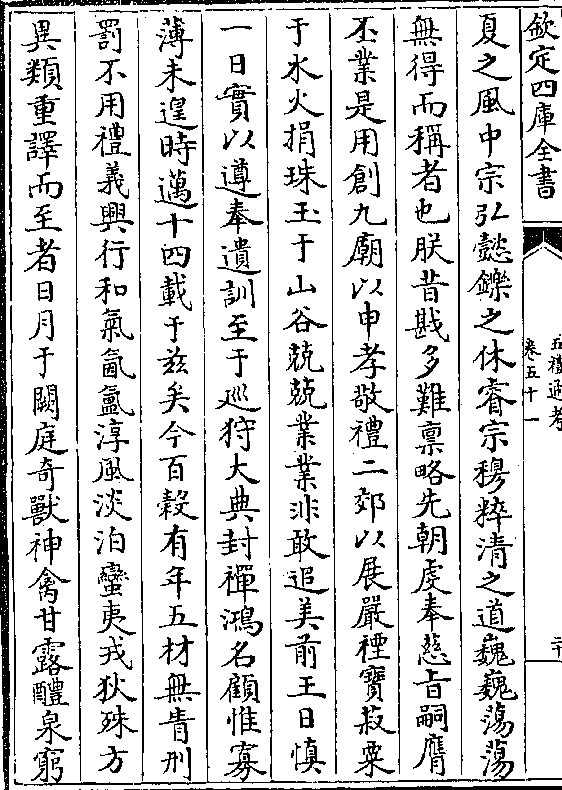 欽定四庫全書
五禮通考
卷五十一
二十
夏之風中宗弘懿鑠之休睿宗穆粹清之道巍巍蕩蕩
無得而稱者也朕昔戡多難禀略先朝虔奉慈旨嗣膺
丕業是用創九廟以申孝敬禮二郊以展嚴禋寶菽粟
于水火捐珠玉于山谷兢兢業業非敢追美前王日慎
一日實以遵奉遺訓至于巡狩大典封禪鴻名顧惟寡
薄未遑時邁十四載于兹矣今百穀有年五材無眚刑
罰不用禮義興行和氣氤氲淳風淡泊蠻夷戎狄殊方
異類重譯而至者日月于闕庭奇獸神禽甘露醴泉窮